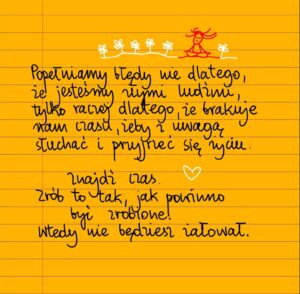 Popełniamy błędy nie dlatego,
że jesteśmy złymi ludźmi,
tylko raczej dlatego, że brakuje
nam czasu, żeby z uwagą
słuchać i przyjrzeć się życiu.
Znajdź czas.
Zrób to tak, jak powinno
być zrobione.
Wtedy nie będziesz żałował.